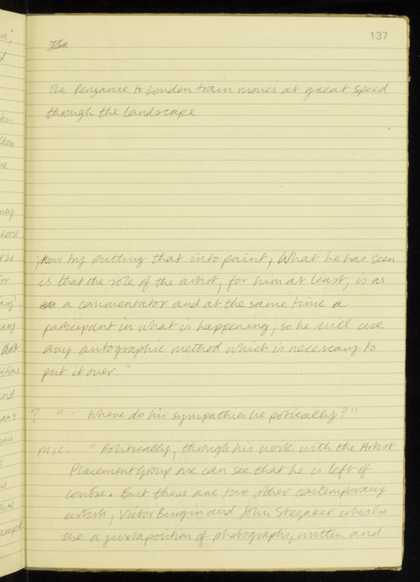 137
The
The Penzance to London train moves at great speed
through the landscape
, now try putting that into paint, What he has seen
is that the role of the artist, for him at least, is as
a commentator and at the same time a
participant in what is happening, so he will use
any autographic method which is necessary to
put it over."
? " - Where do his sympathies lie politically?"
m.c. " Politically, through his work with the Artist
Placement Group we can see that he is left of
centre. But there are two other contemporary
artists, Victor Burgin and John Stezaker who also
use a juxtaposition of photographs, written and